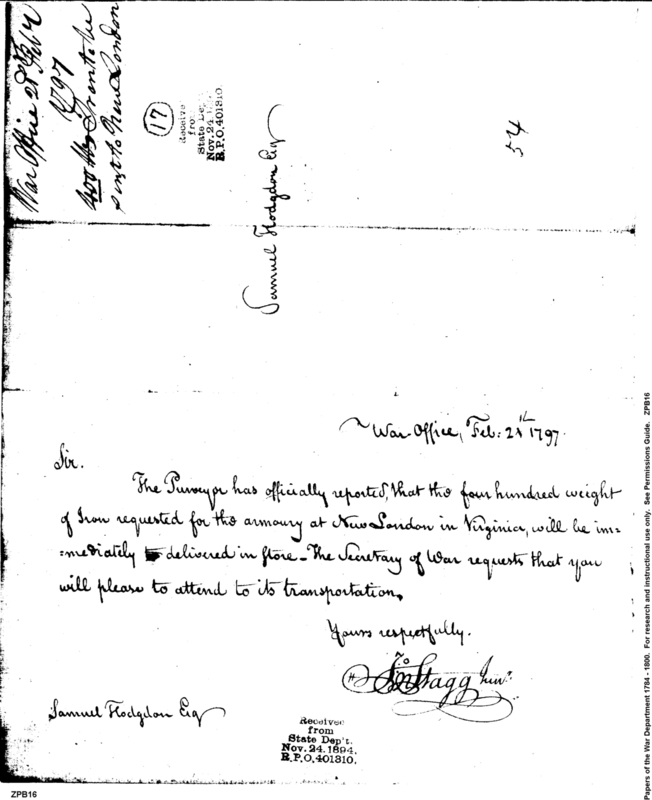 War Office 2d Feby
1797
400 Wt Iron to be
sent to New London
17
Receive
from
State Dep
Nov. 24. 1
R.P.O. 401310.
54
Samuel Hodgdon Esq
War Office, Feb: 1797.
Sir.
The Purveyor has officially reported, that the four hundred weight
of Iron requested for the armoury at New London in Virginia, will be im=
=mediately delivered in store - The Secretary of War requests that you
will please to attend to its transportation.
Yours respectfully.
Jno Stagg Junr.
Samuel Hodgdon Esq
Received
from
State Dep't.
Nov. 24. 1894.
R.P.O. 401310.
ZPB16
Papers of the War Department 1784 - 1800. For research and instructional use only. See Permissions Guide. ZPB16